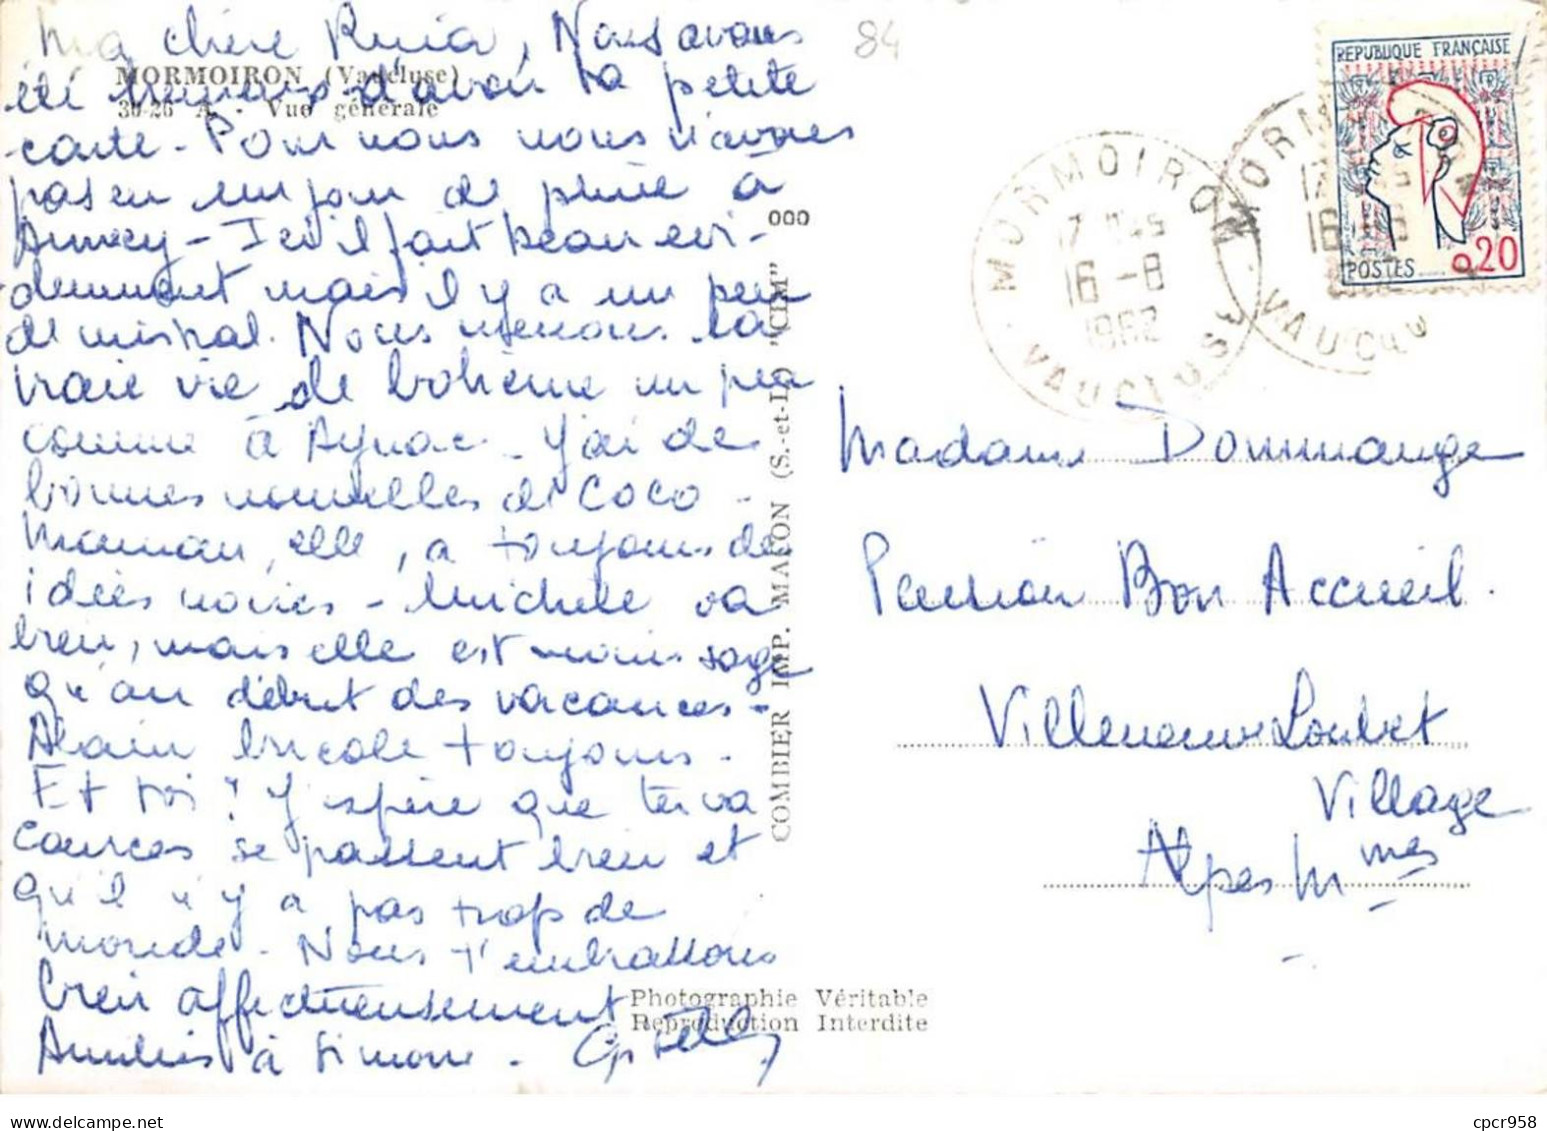 Ma chère, Nous avons
MORMOIRON (Vaucluse)
été d'avoir ta petite
30-26 A. - Vue générale
carte - Pour nous nous n'avons
pas eu un jour de pluie à
Annecy - Ici il fait beau évi-
demment mais il y a un peu
de mistral. Nous menons la
vraie vie de bohème un peu
comme à Aynac - J'ai de
bonnes nouvelles de Coco -
Maman, elle, a toujours des
idées noires - Michèle va
bien, mais elle est moins sage
qu'au début des vacances -
Alain bricole toujours -
Et toi ? J'espère que tes va
cances se passent bien et
qu'il n'y a pas trop de
monde - Nous t'embrassons
bien affectueusement
Amitiés à Simone -
84
REPUBLIQUE FRANÇAISE
POSTES 0,20
MORMOIRON
17 H45
16 -8
1962
VAUCLUSE
000
COMBIER IMP. MACON (S.-et-L.) "CIM"
Madame Dommange
Pension Bon Accueil.
Villeneuve Loubet
Village
Alpes Mmes
Photographie Véritable
Reproduction Interdite
cpcr958